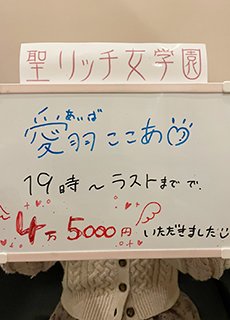 聖リッチ女学園
あいば
愛羽ここあ
19時~ラストまでで、
4万5000円いただきました